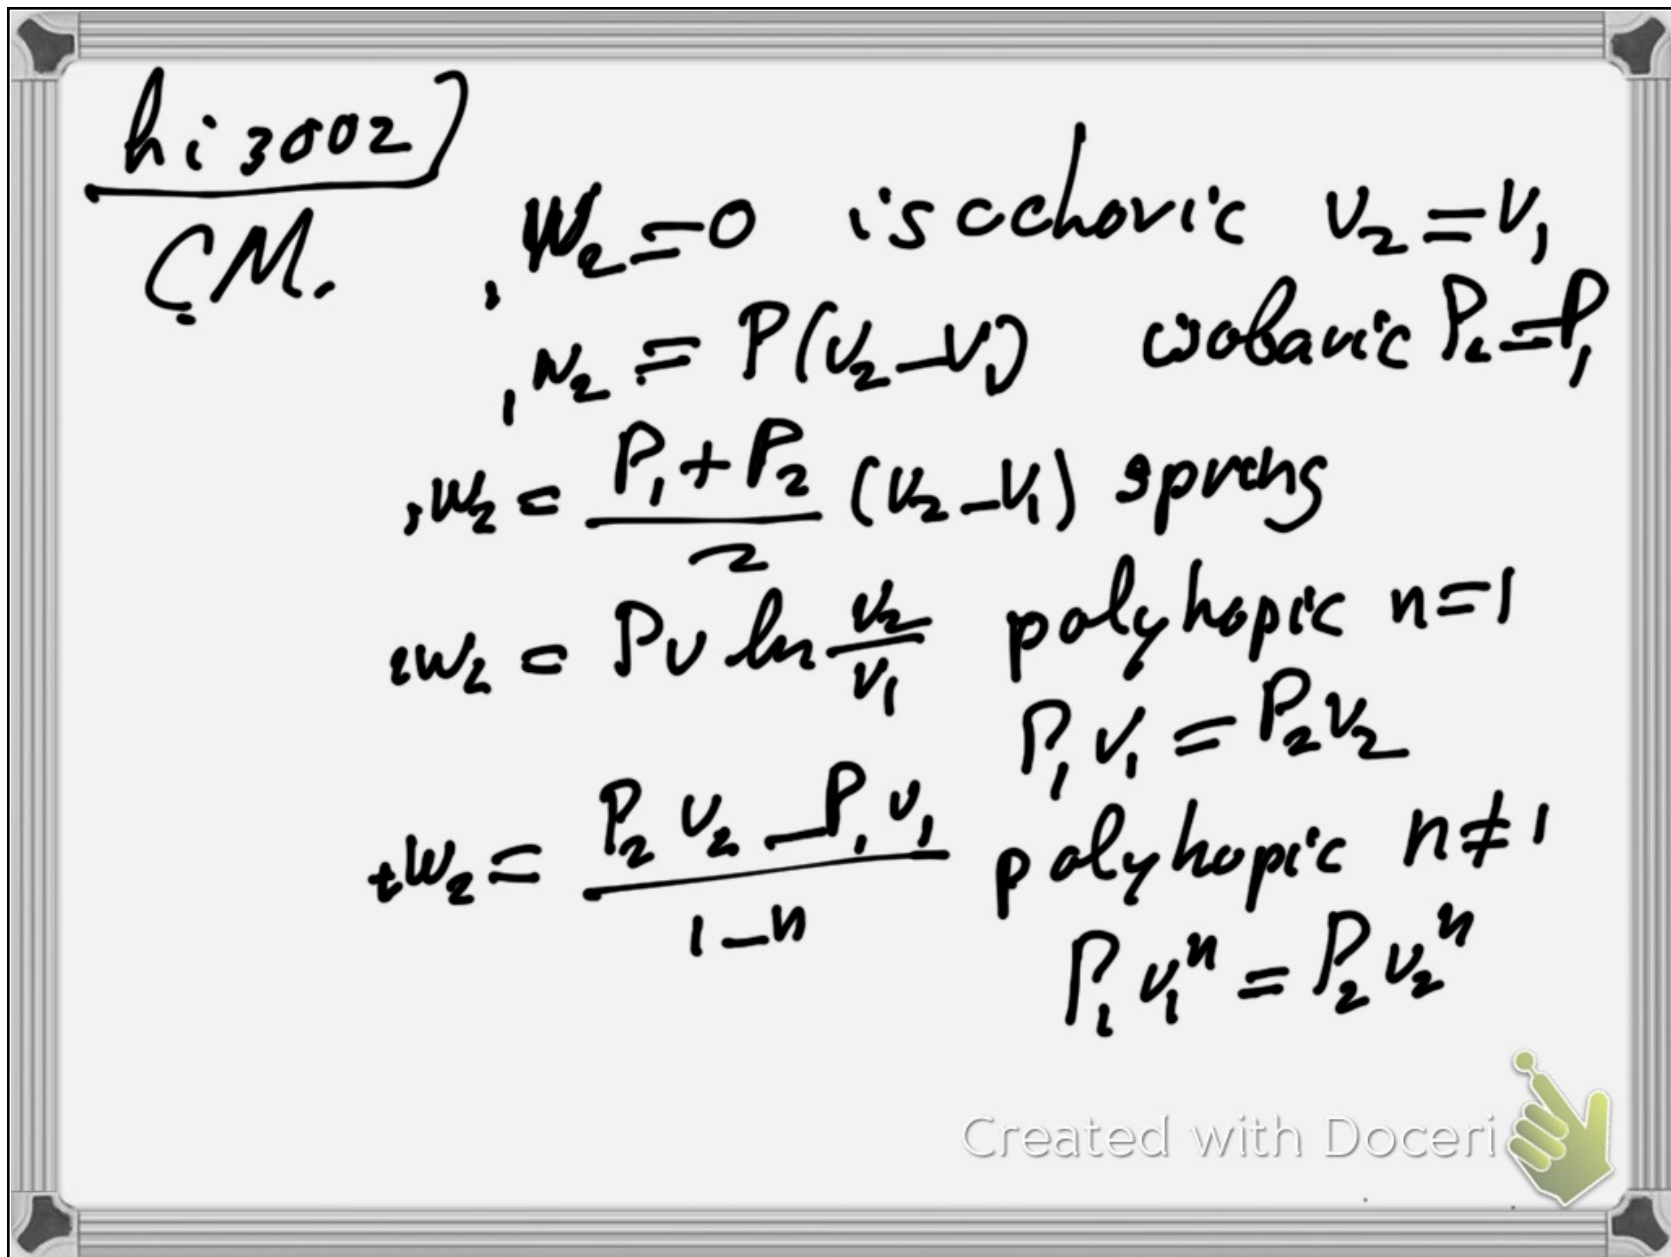 hi 3002)
C.M.
₁W₂ = 0 isochoric V₂ = V₁
₁W₂ = P(V₂ - V₁) isobaric P₂ = P₁
₁W₂ = (P₁ + P₂)/2 (V₂ - V₁) spring
₁W₂ = PV ln V₂/V₁ polytropic n=1
P₁V₁ = P₂V₂
₁W₂ = (P₂V₂ - P₁V₁)/(1 - n) polytropic n≠1
P₁V₁ⁿ = P₂V₂ⁿ
Created with Doceri